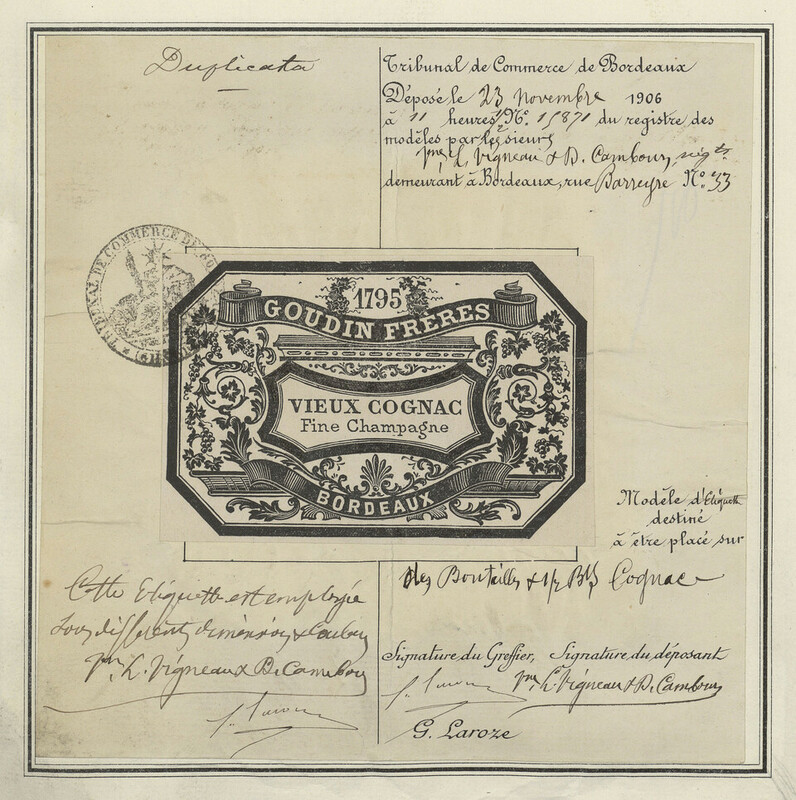 Duplicata
Tribunal de Commerce de Bordeaux
Déposé le 23 novembre 1906
à 11 heures N.° 15871 du registre des
modèles par les sieurs
L. Vigneau & D. Cambours, négts
demeurant à Bordeaux, rue Barreyre N.° 33
TRIBUNAL DE COMMERCE DE BO
1795
GOUDIN FRÈRES
VIEUX COGNAC
Fine Champagne
BORDEAUX
Modèle d'Etiquette
destiné
à être placé sur
des Bouteilles & 1/2 Blles Cognac
Cette Etiquette est employée
sous différents dimensions & Couleurs
L. Vigneau & D. Cambours
Signature du Greffier, Signature du déposant
L. Vigneau & D. Cambours
G. Laroze